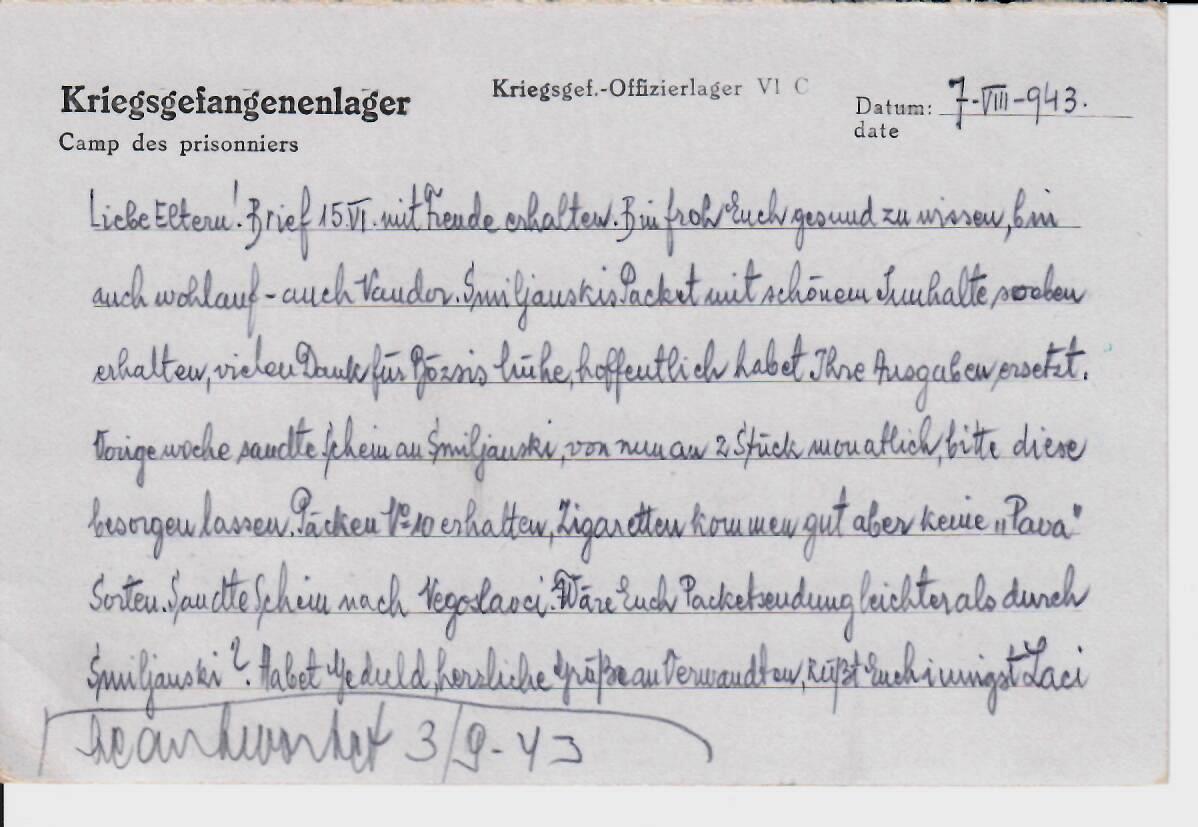 Kriegsgefangenenlager
Camp des prisonniers
Kriegsgef.-Offizierlager VI C
Datum: 7-VIII-943.
date
Liebe Eltern! Brief 15.VI. mit Freude erhalten. Bin froh Euch gesund zu wissen, bin
auch wohlauf - auch Vandor. Smiljanskis Packet mit schönem Innhalte soeben
erhalten, vielen Dank für Bözsis Mühe, hoffentlich habet Ihre Ausgaben ersetzt.
Vorige woche sandte Schein an Smiljanski, von nun an 2 Stück monatlich, bitte diese
besorgen lassen. Päcken No 10 erhalten, Zigaretten kommen gut aber keine „Pava"
Sorten. Sandte Schein nach . Wäre Euch Packetsendung leichter als durch
Smiljanski? Habet Geduld, herzliche Grüße an Verwandten, Küßt Euch innigst Laci
beantwortet 3/9-43